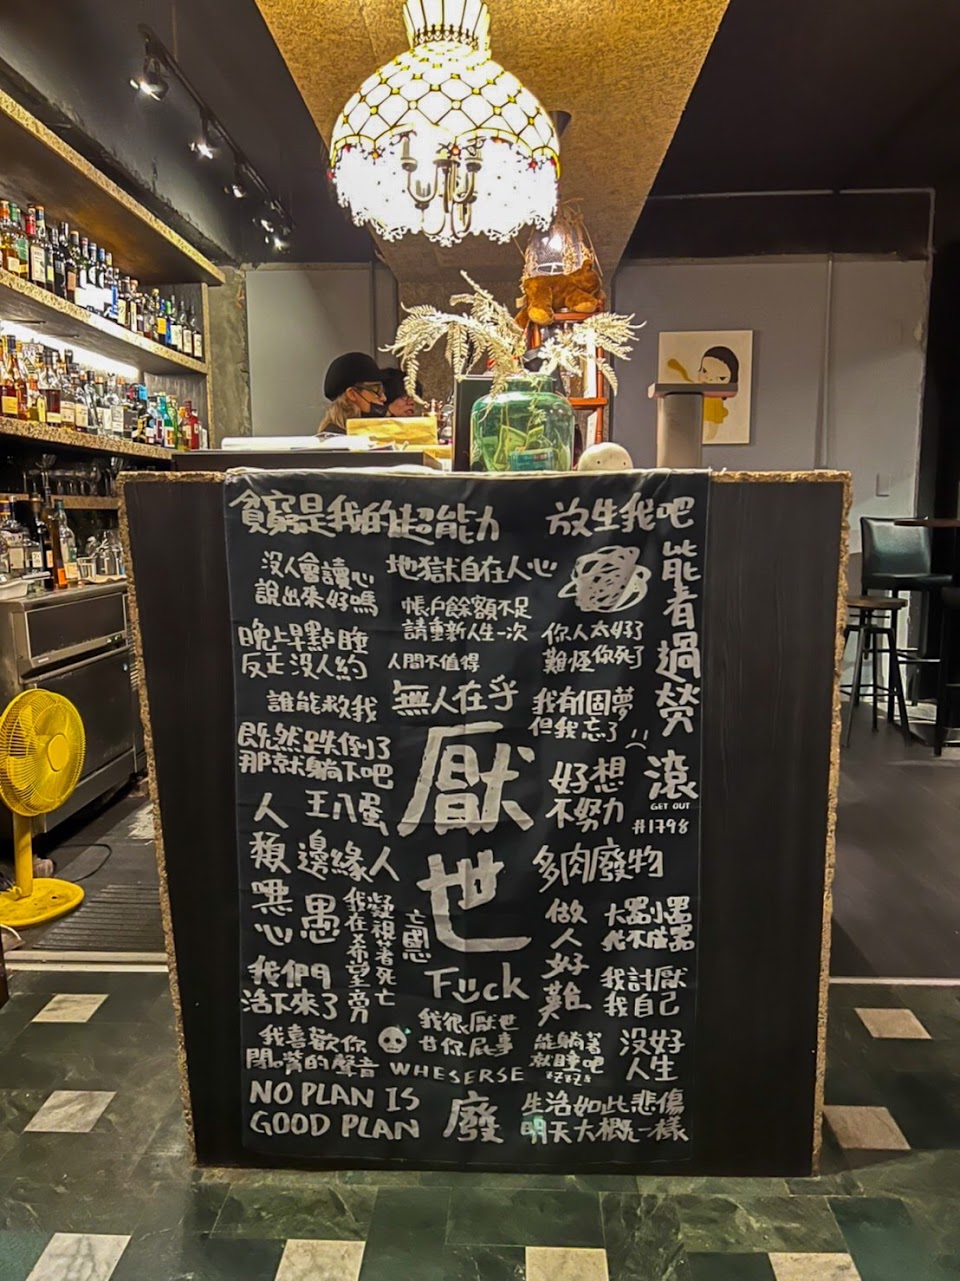 貧窮是我的超能力
放生我吧
沒人會讀心
說出來好嗎
地獄自在人心
能者過勞
帳戶餘額不足
請重新人生一次
晚上早點睡
反正沒人約
人間不值得
你人太好了
難怪你死了
誰能救我
無人在乎
我有個夢
但我忘了
既然跌倒了
那就躺下吧
厭世
好想
不努力
滾
GET OUT
#1798
人類噁心
王八蛋
邊緣人
多肉廢物
愚
我在希望
凝視著死亡
做人好難
大器小器
我不成器
我們
活不來了
Fuck
我討厭
我自己
我喜歡你
閉嘴的聲音
我很厭世
甘你屁事
WHESERSE
能躺著
就睡吧
沒好
人生
NO PLAN IS
GOOD PLAN
廢
生活如此悲傷
明天大概一樣